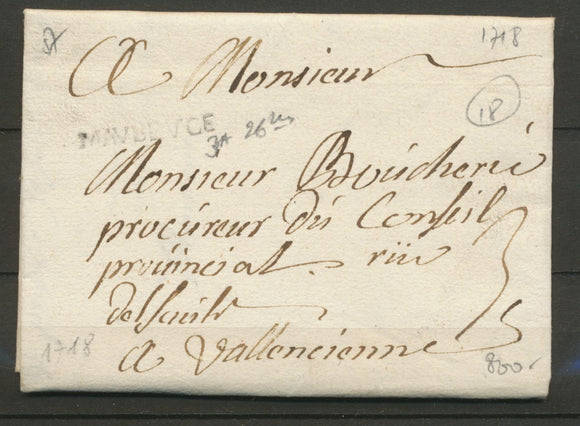 1718
A Monsieur
18
MAUBEUGE
3A 26
Monsieur Boucherie
procureur du Conseil
provincial rüe
a Vallencienne
1718
800